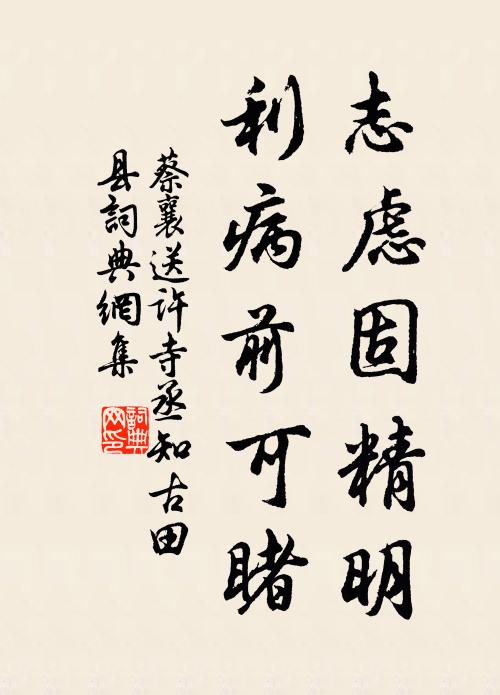 志慮固精明
利病前可睹
蔡襄送許寺丞知古田
县詞典網集
詞典網印